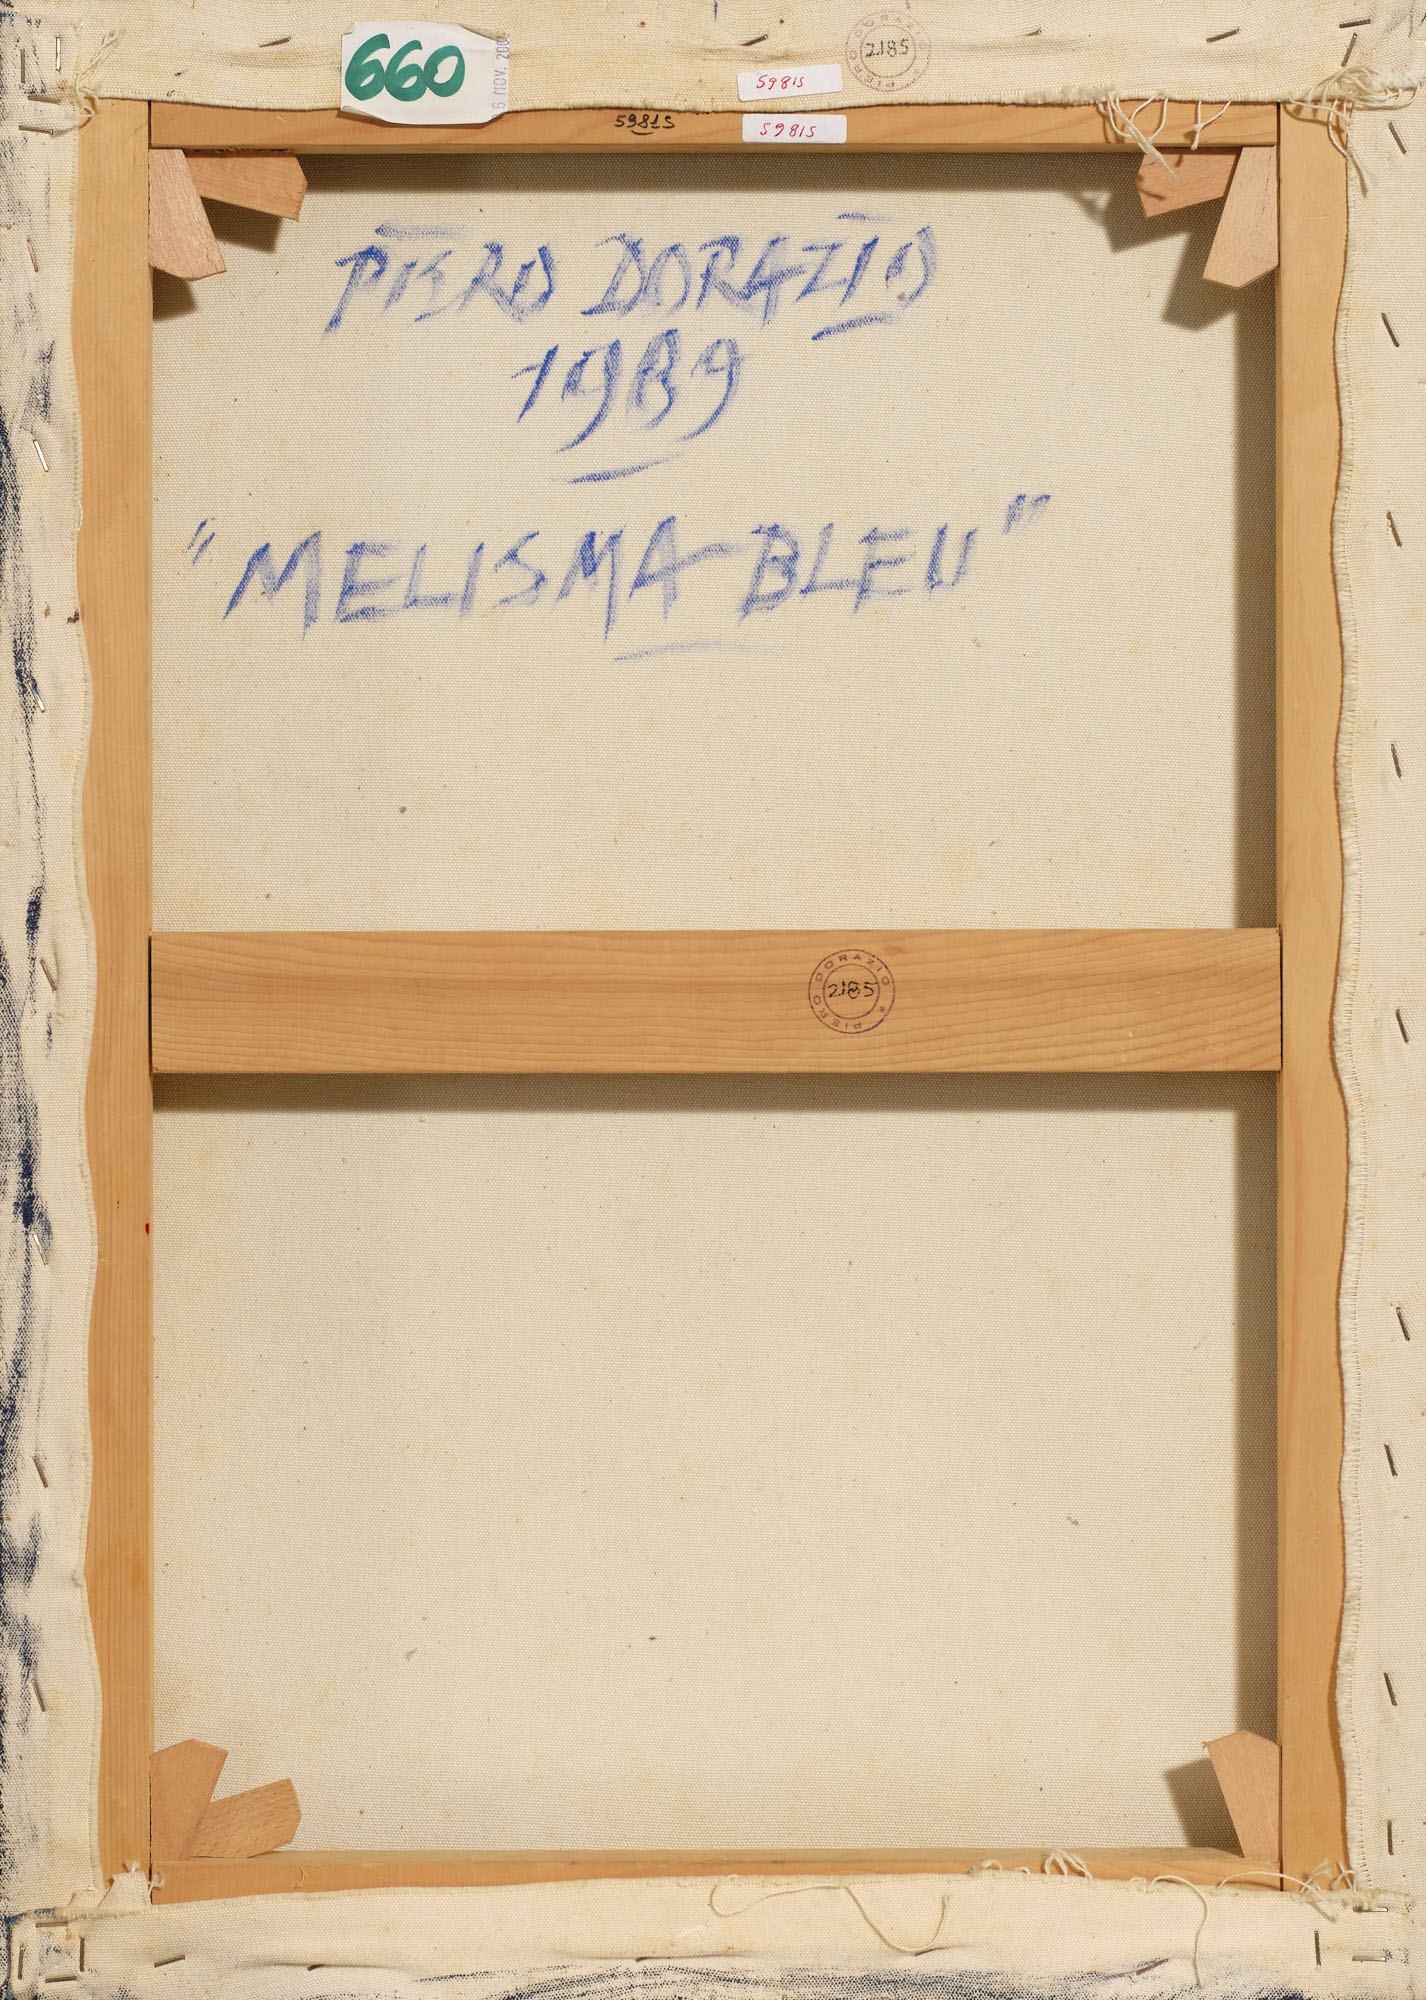 660
6 NOV. 200
59815
PIERO DORAZIO * 2185
59815
59815
PIERO DORAZIO
1989
"MELISMA-BLEU"
PIERO DORAZIO * 2185